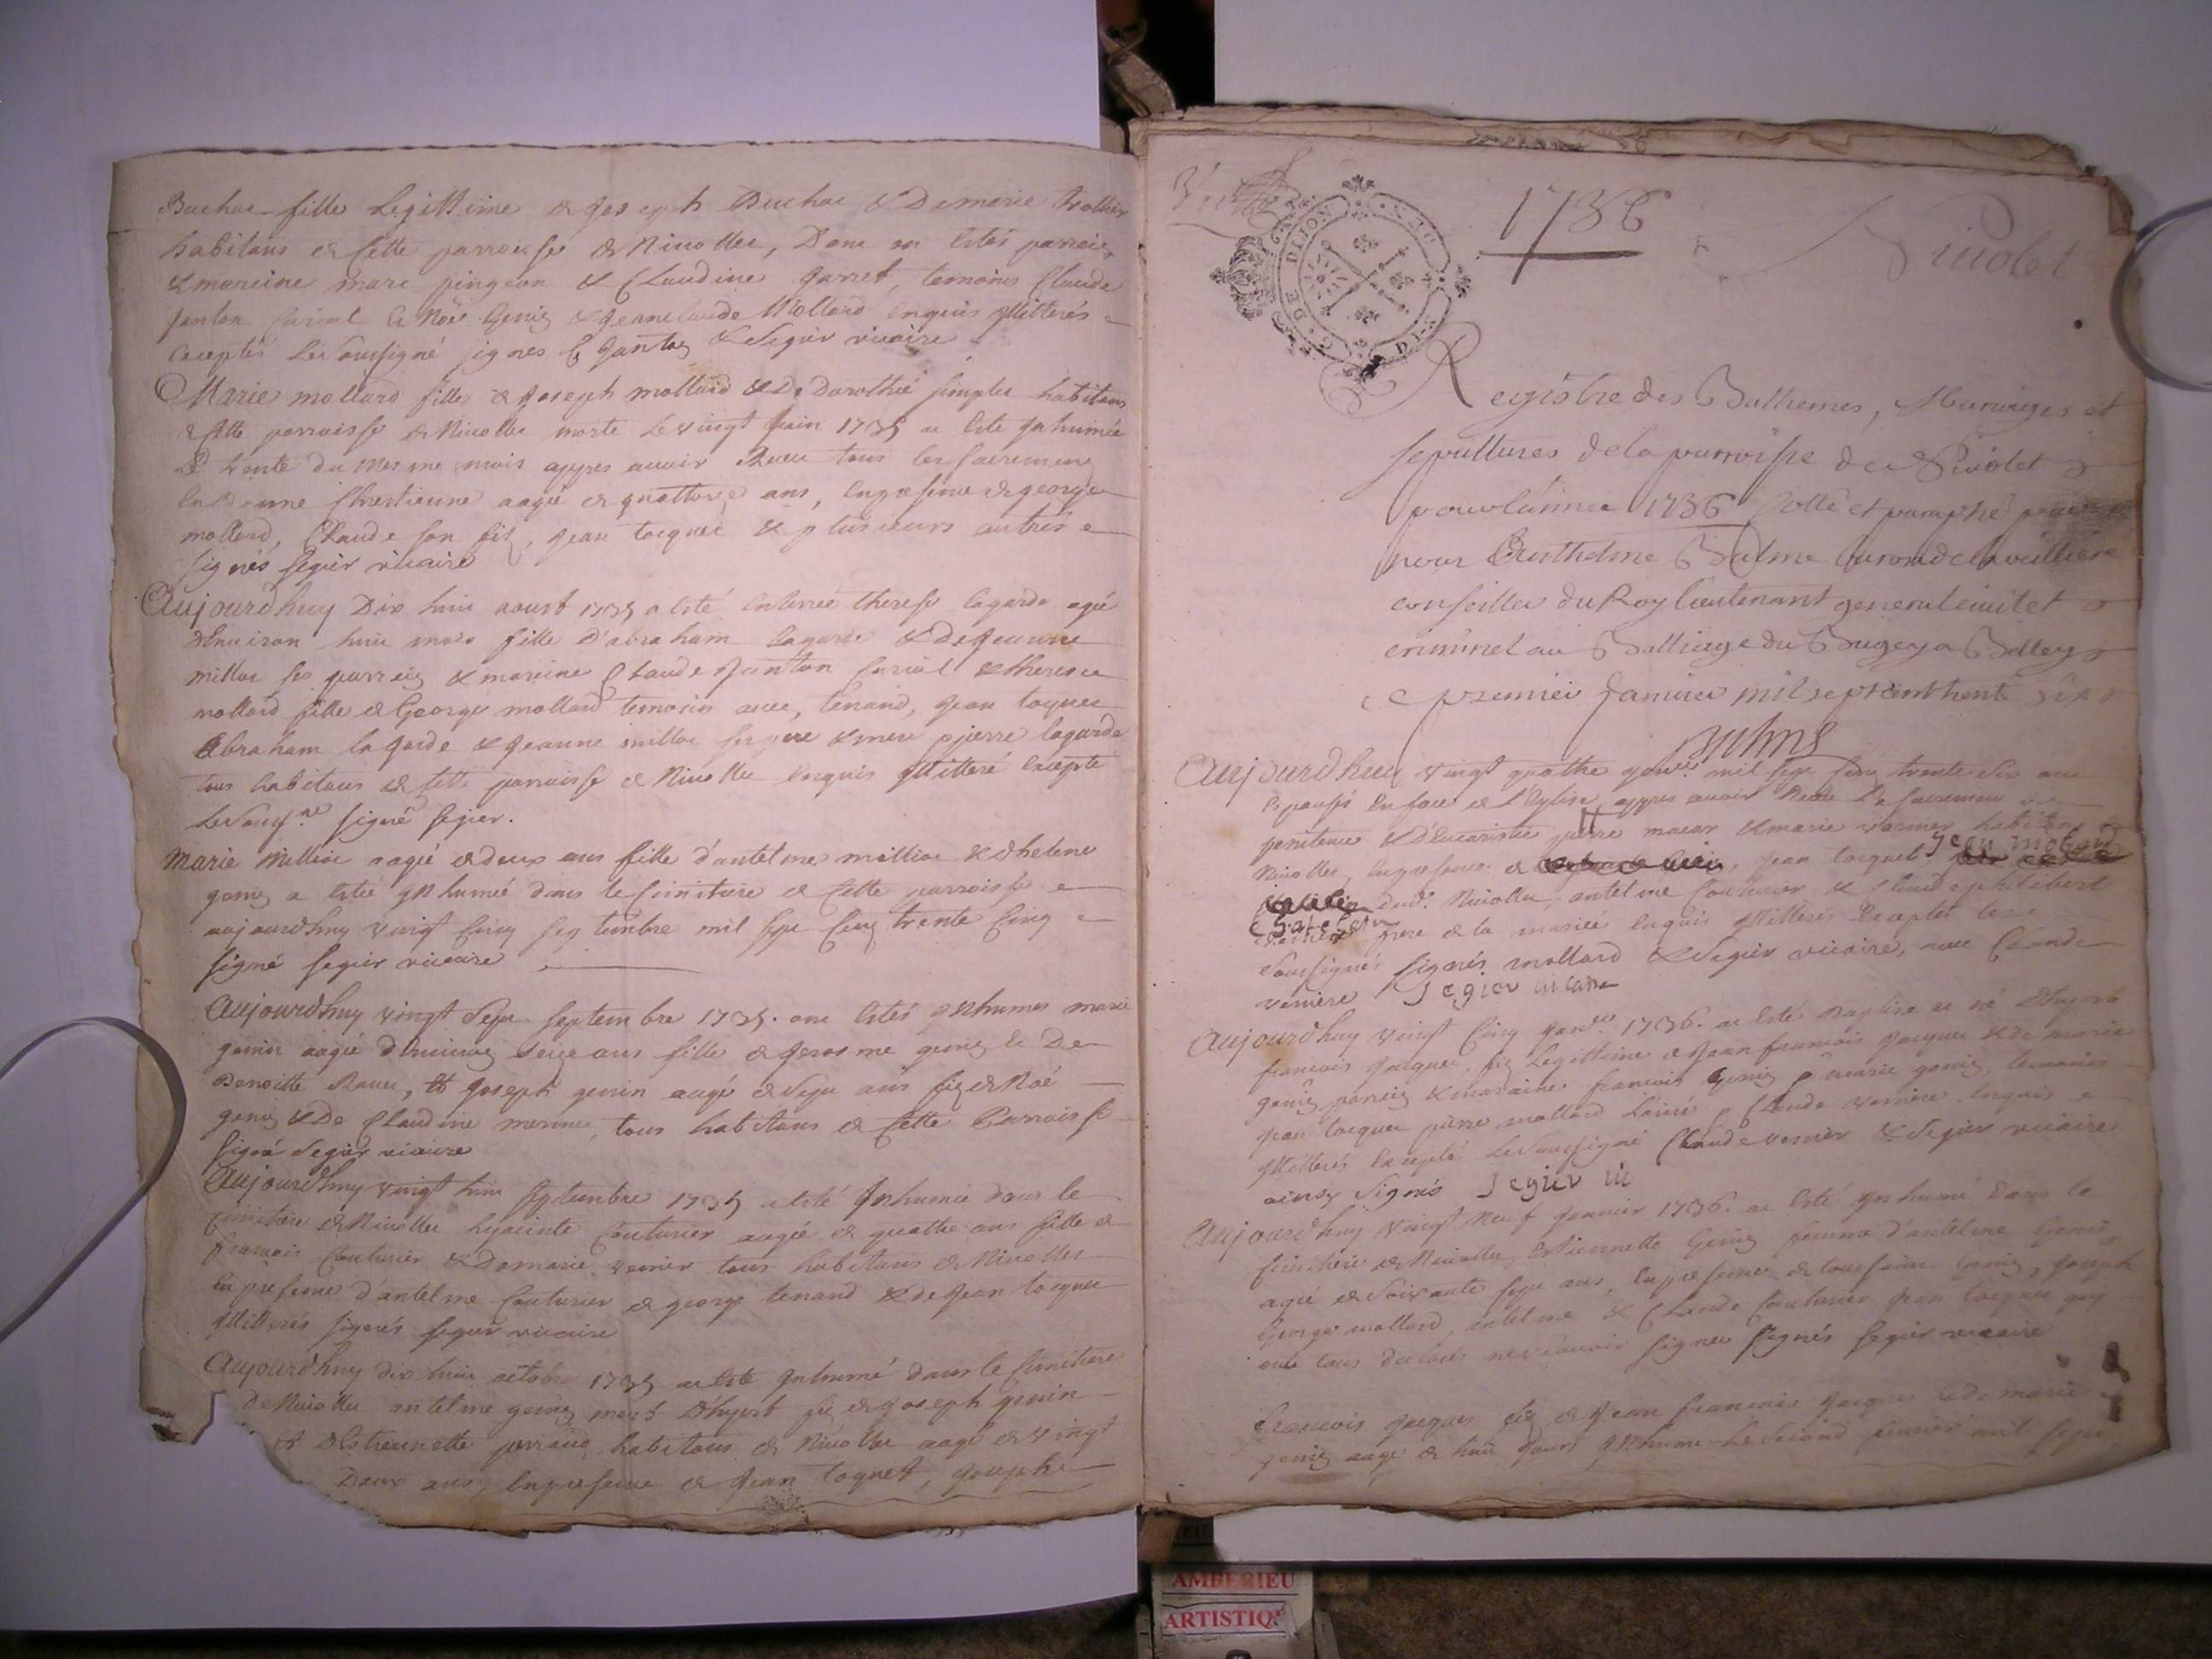 Buchoc fille Legittime de Joseph Buchoc & De marie
habitans de sette parroisse de Nivollet, Dont on Estés parrein
& mareine marc pingeon & Claudine Garret, temoins Claude
janton Curial & Noé Genin & Jeanclaude Mollard enquis Illitterés
exceptés Les soussigné signes C Janton & Segier vicaire
Marie mollard fille de Joseph mollard & De Dorothée habitans
de sette parroisse de Nivollet morte Le vingt juin 1735 a Esté Inhumée
Le trente du mesme mois appres auoir Receu tous les sacremens
Chrestienne aagée de quattorze ans, En presence de george
mollard, Claude son fils, jean tocquet & plusieurs autres
signés segier vicaire
Aujourdhuy Dix huit aoust 1735 a Esté Enterrée therese lagarde agée
Denuiron huit mois fille D'abraham Lagarde & De Jeanne
millioc ses parrein & mareine Claude Janton Curial & therese
mollard fille de George mollard temoins avec, tenand, Jean toquet
Abraham la garde & Jeanne millioc ses pere & mere pierre lagarde
tous habitans de sette parroisse de Nivollet Enquis Illitteré Excepté
Le Sous.né signé segier.
Marie Millioc aagée de deux ans fille d'antelme millioc & d'helene
genin a Estée Inhumée dans le simitiere de Cette parroisse
aujourdhuy vingt Cinq septembre mil sept Cent trente Cinq
signé segier vicaire
Aujourdhuy vingt Sept septembre 1735. ont Estés Inhumes marie
genin aagée D'enuiron seize ans fille de Jerosme genin & De
Benoitte, & Joseph genin aagé de Sept ans fils de Noé
genin & De Claudine, tous habitans de Cette Parroisse
signé Segier vicaire
Aujourdhuy vingt huit septembre 1735 a Esté Inhumée dans le
simitiere de Nivollet hyacinte Couturier aagée de quattre ans fille de
francois Couturier & De marie vernier tous habitans de Nivollet
En presence d'antelme Couturier de george tenand & de Jean tocquet
Illitterés signés segier vicaire
Aujourdhuy dix huit octobre 1735 a Esté Inhumé dans le simitiere
De Nivollet antelme genin mort D'hyert fils de Joseph genin
& D'Estiennette perraud habitans de Nivollet aagé de vingt
Deux ans, En presence de Jean toquet, Joseph
1736
Nivolet
G. DE DIJON
Registre des Bathemes, Mariages et
sepultures de la parroisse de Nivolet
pour lannée 1736 Cotté et paraphé
nous Anthelme Balme
conseiller du Roy lieutenant general ciuil et
criminel au Balliage du Bugey a Belley
ce premier Januier mil sept cent trente six
Balme
Aujourdhuy vingt quattre janv.er mil sept Cent trente six ont
Espousés En face de L'Eglise, appres auoir Receu Le Sacrement de
penitence & d'Eucaristie pierre & marie vernier habitans
Nivollet, En presence de, jean tocquet, Jean molard
dud.t Nivollet, antelme Couturier & Claude philibert
frere de la mariée Enquis Illitterés Exceptés les
Soussignés signés mollard & Segier vicaire, avec Claude
verniere Segier vicaire
Aujourdhuy vingt Cinq Janv.er 1736. a Esté Baptisé et né D'hyert
francois Jacques, fils Legittime de Jean francois Jacques & De marie
genin, parrein & maraine francois Genin & marie genin, temoins
jean tocquet pierre mollard L'ainé, Claude verniere Enquis
Illitterés Excepté Le Soussigné Claude vernier & Segier vicaire
ainsy Signés Segier vic
Aujourdhuy vingt Neuf Januier 1736. a Esté Inhumé Dans le
simitiere de Nivollet, Estiennette Genin femme d'antelme Genin
agée de Soixante sept ans, En presence de toussaint Genin, Joseph
George mollard, antelme & Claude Couturier jean tocquet qui
ont tous declarés ne sçauoir signer signés segier vicaire
francois Jacques fils de Jean francois Jacques & De marie
genin aagé de huit Jours Inhumé Le Second feurier mil sept
AMBERIEU
ARTISTIQ